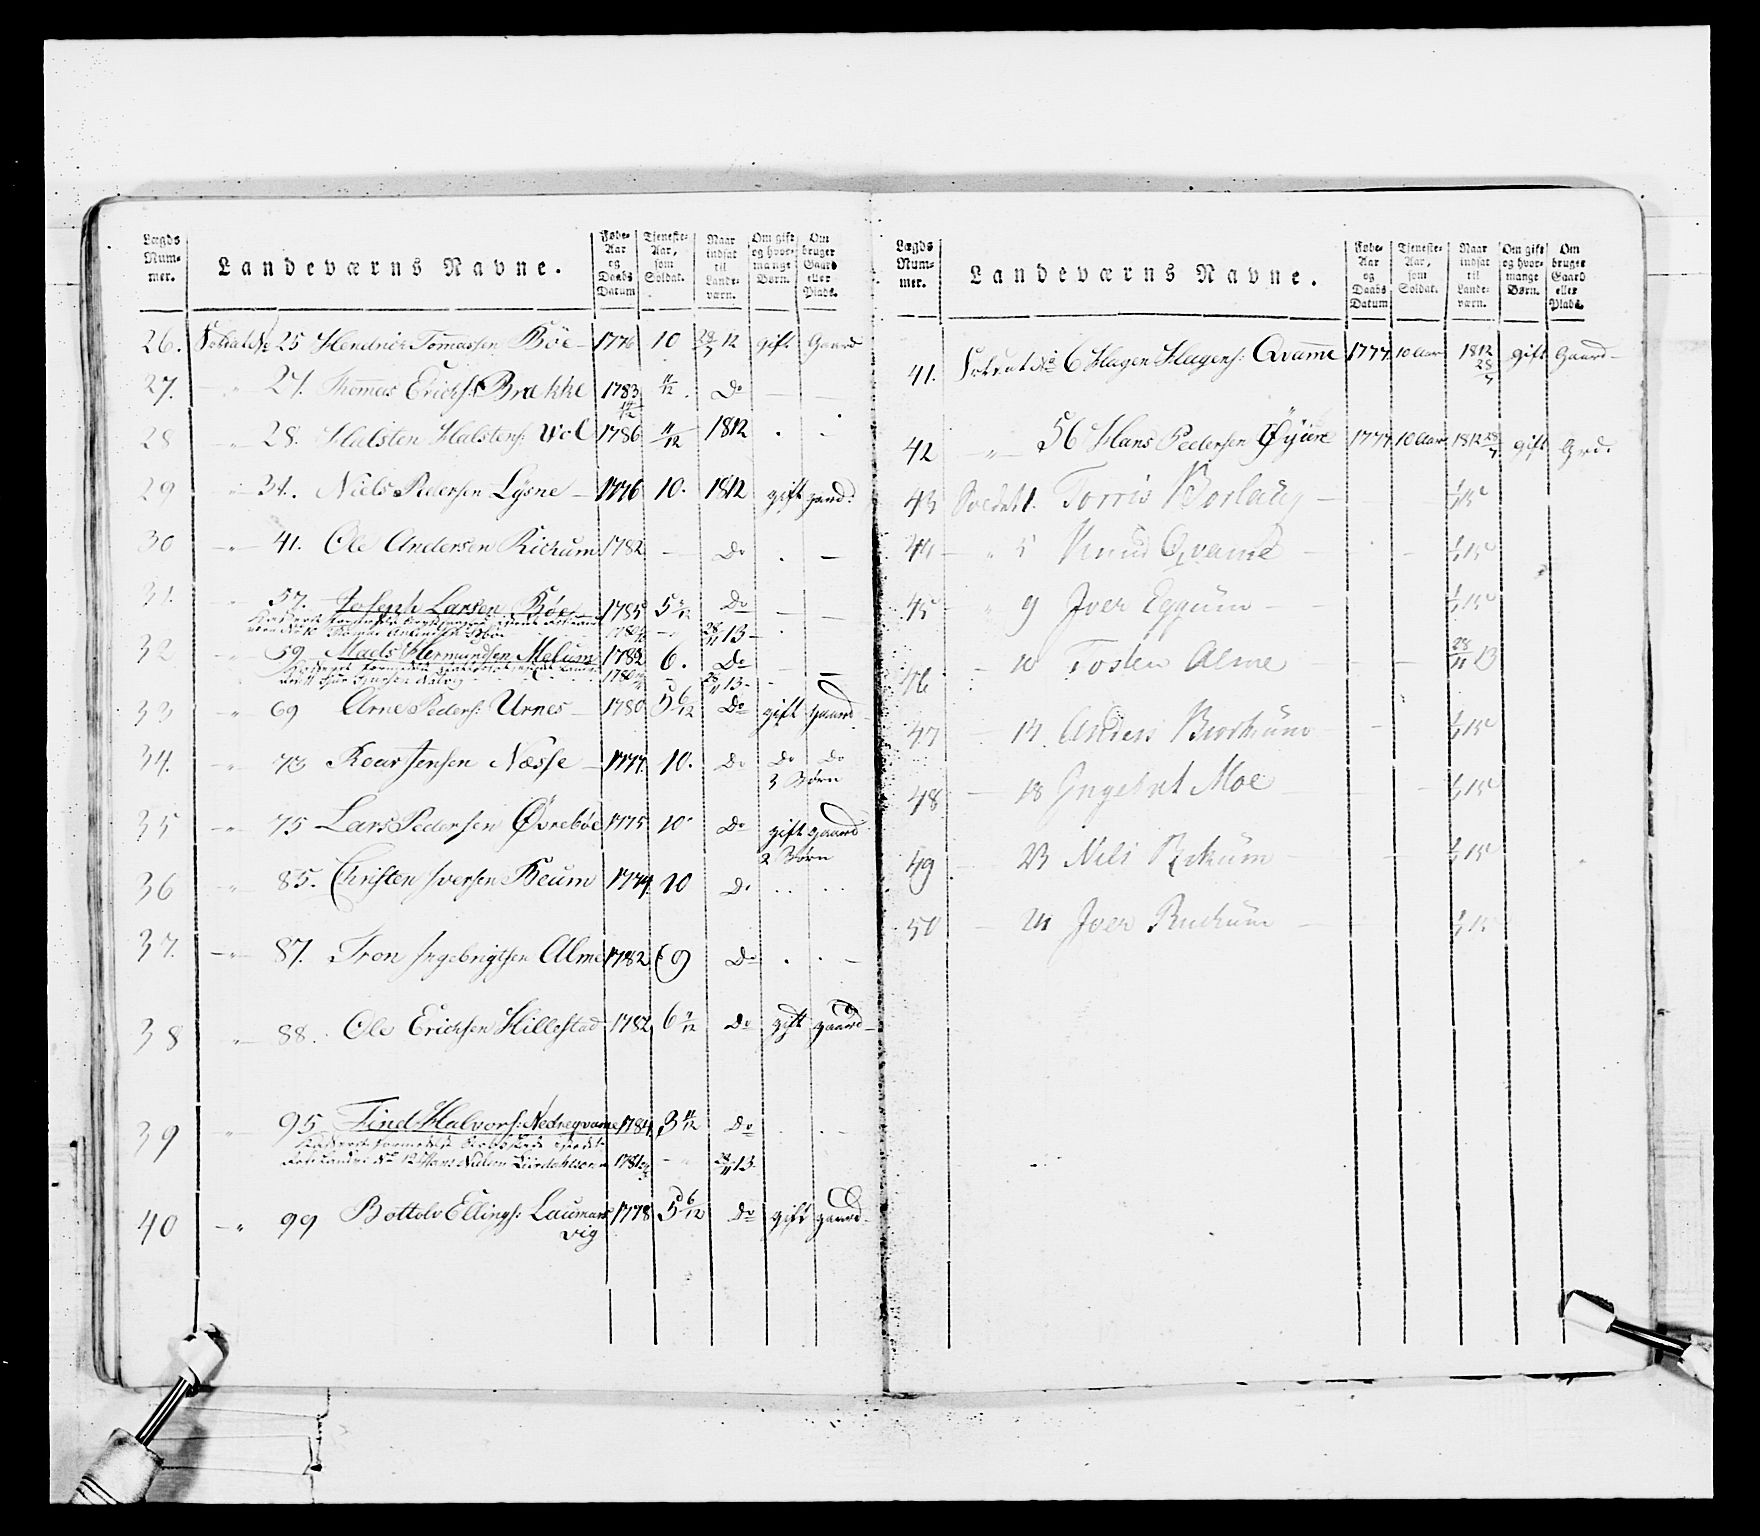 Lægds Num- mer.
Landeværns Navne.
Føde- Aar og Daabs Datum
Tjeneste- Aar, som Soldat.
Naar indsat til Lande- værn.
Om gift og hvor- mange Børn.
Om bruger Gaard eller Plads.
26. Soldat No 25 Hendrich Tomassen Böe 1776 10 28/7 12 gift Gaard
27. " 27. Thomas Erichs: Brække 1783 11/12 Do
28 " 28. Halsten Halstens: Wol 1786 11/12 1812
29 " 34. Niels Pedersen Lÿsne 1776 10. 1812 gift gaard.
30 " 41. Ole Andersen Rickum 1782 Do
31. " 57. Joseph Larsen Böe 1785 5 Do
28/11 13
32 " 59 Mads Hermundsen Melum 1782 6. Do
28/11 13
33 " 69 Arne Peders: Urnes 1780 5 6/12 Do gift gaard
34. " 73 Roar Jensen Næsse 1777. 10. Do Do Do
3 Børn
35 " 75 Lars Pedersen Övrebøe 1775 10 Do gift gaard
2 Børn
36 " 85. Christen Iversen Beum 1774 10 Do
37. " 87. Tron Ingebrigtsen Alme 1782 9 Do
38 " 88. Ole Erichsen Hillestad 1782 6 Do gift gaard
39 " 95 Find Halvors: Nedreqvame 1784 3 11/12 Do
28/11 13
40 " 99 Bottolv Ellings: Laumans 1778 5 6/12 Do gift gaard
vig
Lægds Num- mer.
Landeværns Navne.
Føde- Aar og Daabs Datum
Tjeneste- Aar, som Soldat.
Naar indsat til Lande- værn.
Om gift og hvor- mange Børn.
Om bruger Gaard eller Plads.
41. Soldat No 6 Hagen Hagens: Qvamme 1777. 10 Aar 1812 28/7 gift Gaard
42 " 56 Hans Pedersen Øÿure 1777. 10 Aar 1812 28/7 gift Grd.
43 Soldat 1. Torris Borlaug 1/1 15
44 " 5 Knud Qvame 1/1 15
45 " 9 Iver Eggum 1/1 15
46 " 10 Tosten Alme 28/11 13
47 14. Anders 1/1 15
48 18 Ingebret Moe 1/1 15
49 23 Nils Rickum 1/1 15
50 24 Iver Rickum 1/1 15